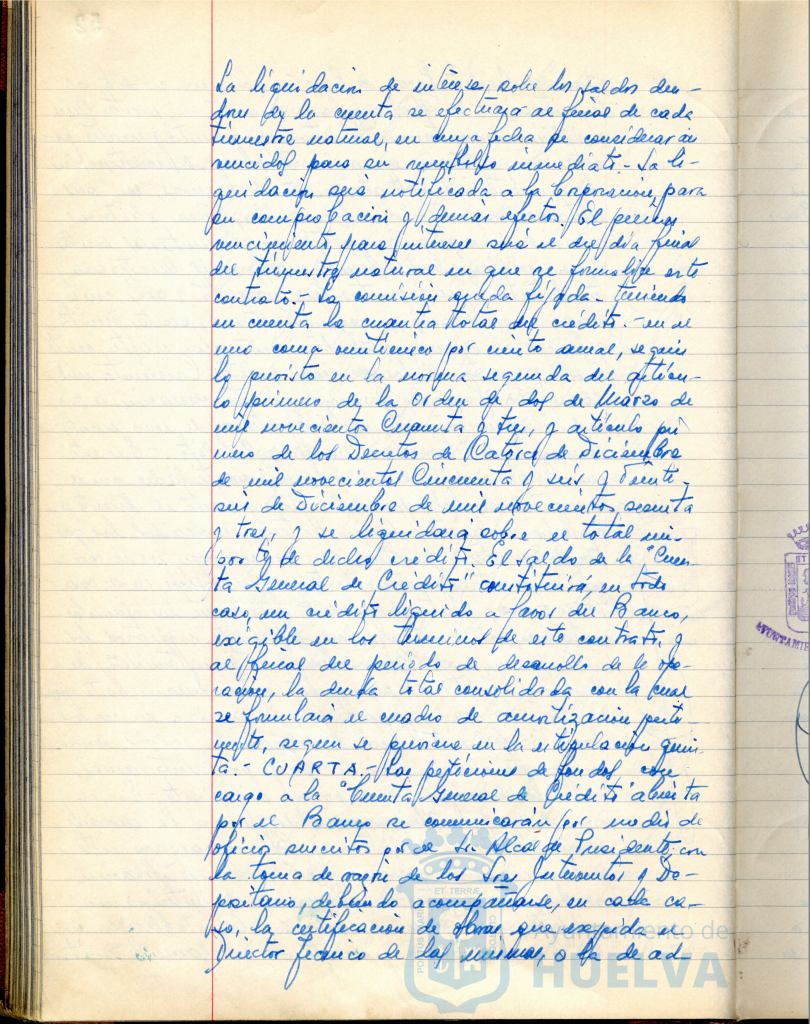 La liquidación de intereses sobre los saldos deu-
dores de la cuenta se efectuará al final de cada
trimestre natural, en cuya fecha se considerarán
vencidos para su reembolso inmediato.- La li-
quidación será notificada a la Corporación, para
su comprobación y demás efectos. El primer
vencimiento para intereses será el del día final
del trimestre natural en que se formalize este
contrato.- La comisión queda fijada - teniendo
en cuenta la cuantía total del crédito.- en el
uno coma veinticinco por ciento anual, según
lo previsto en la norma segunda del artícu-
lo primero de la Orden de dos de Marzo de
mil novecientos Cuarenta y tres, y artículo pri
mero de los Decretos de Catorce de Diciembre
de mil novecientos Cincuenta y seis y Veinti-
seis de Diciembre de mil novecientos sesenta
y tres, y se liquidará sobre el total im-
porte de dicho crédito. El saldo de la "Cuen
ta General de Crédito" constituirá, en todo
caso, un crédito líquido a favor del Banco,
exigible en los términos de este contrato, y
al final del periodo de desarrollo de la ope-
ración, la deuda total consolidada con la cual
se formulará el cuadro de amortización perti-
nente, segun se previene en la estipulación quin-
ta.- CUARTA.- Las peticiones de fondos con
cargo a la "Cuenta General de Crédito" abierta
por el Banco se comunicarán por medio de
oficios suscritos por el Sr. Alcalde Presidente, con
la toma de razón de los Sres Interventor y De-
positario, debiendo acompañarse, en cada ca-
so, la certificación de obras que expida el
Director Técnico de las mismas, o la de ad-
Ayuntamiento de
HUELVA